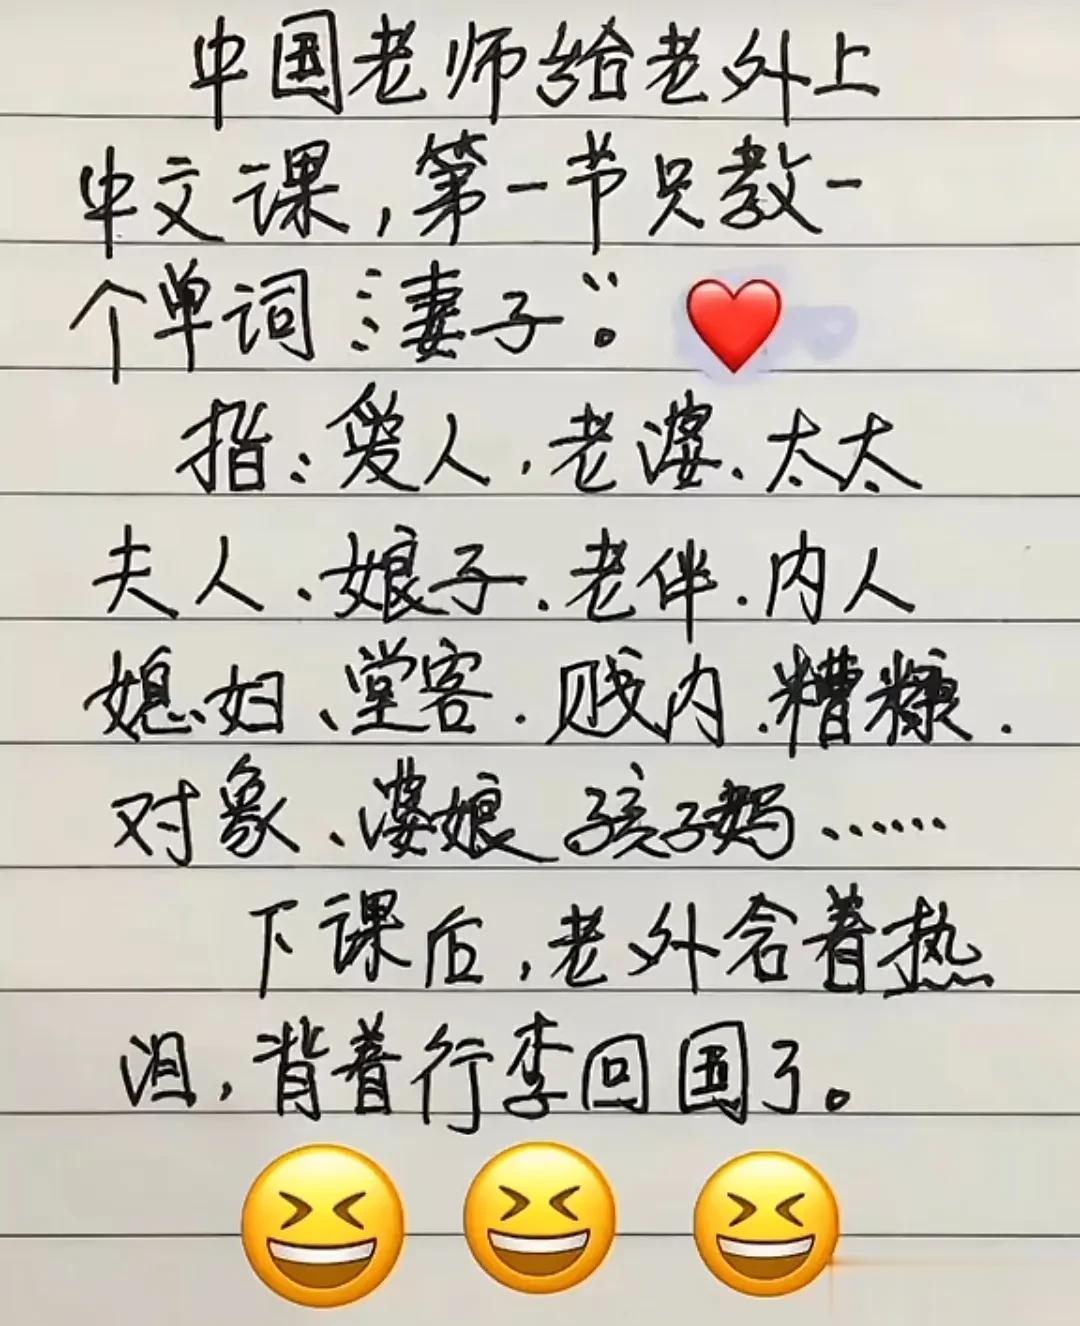 中国老师给老外上
中文课，第一节只教一
个单词“妻子”。
指：爱人，老婆、太太
夫人、娘子．老伴．内人
媳妇、堂客．贱内．糟糠．
对象、婆娘 孩子妈……
下课后，老外含着热
泪，背着行李回国了。